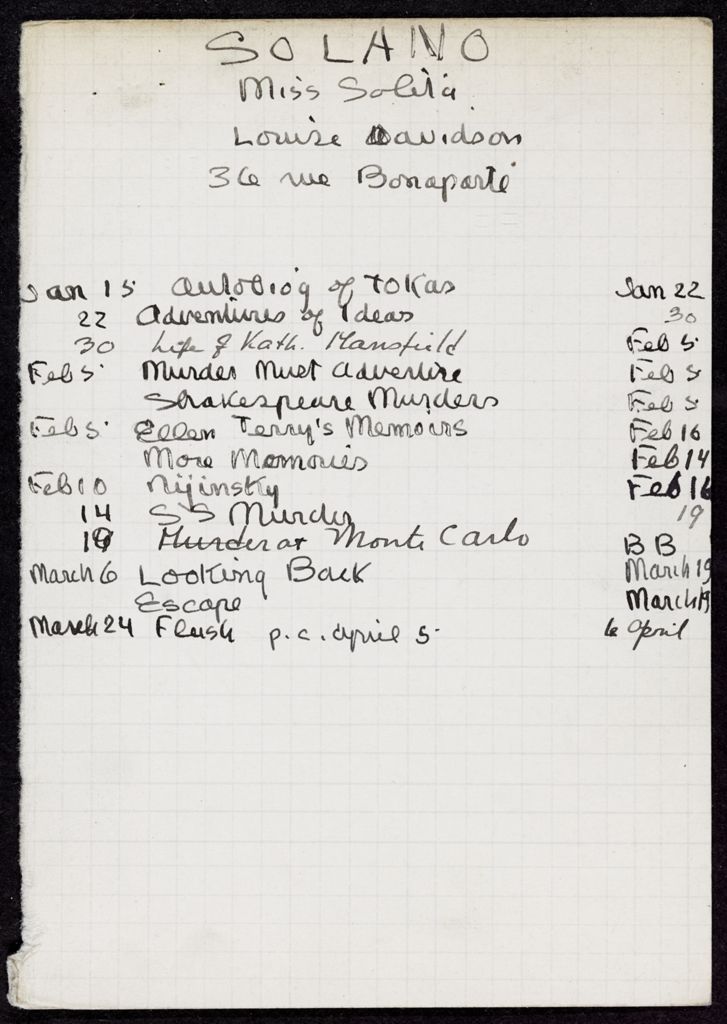 SOLANO
Miss Solita
Louise Davidson
36 rue Bonaparte
Jan 15 autobiog of Toklas Jan 22
22 adventures of Ideas 30
30 Life of Kath. Mansfield Feb 5
Feb 5 Murder Must advertise Feb 5
Shakespeare Murders Feb 5
Feb 5 Ellen Terry's Memoirs Feb 16
More Memories Feb 14
Feb 10 Nijinsky Feb 16
14 SS Murder 19
19 Murder at Monte Carlo BB
March 6 Looking Back March 19
Escape March 19
March 24 Flush p.c. april 5 6 April